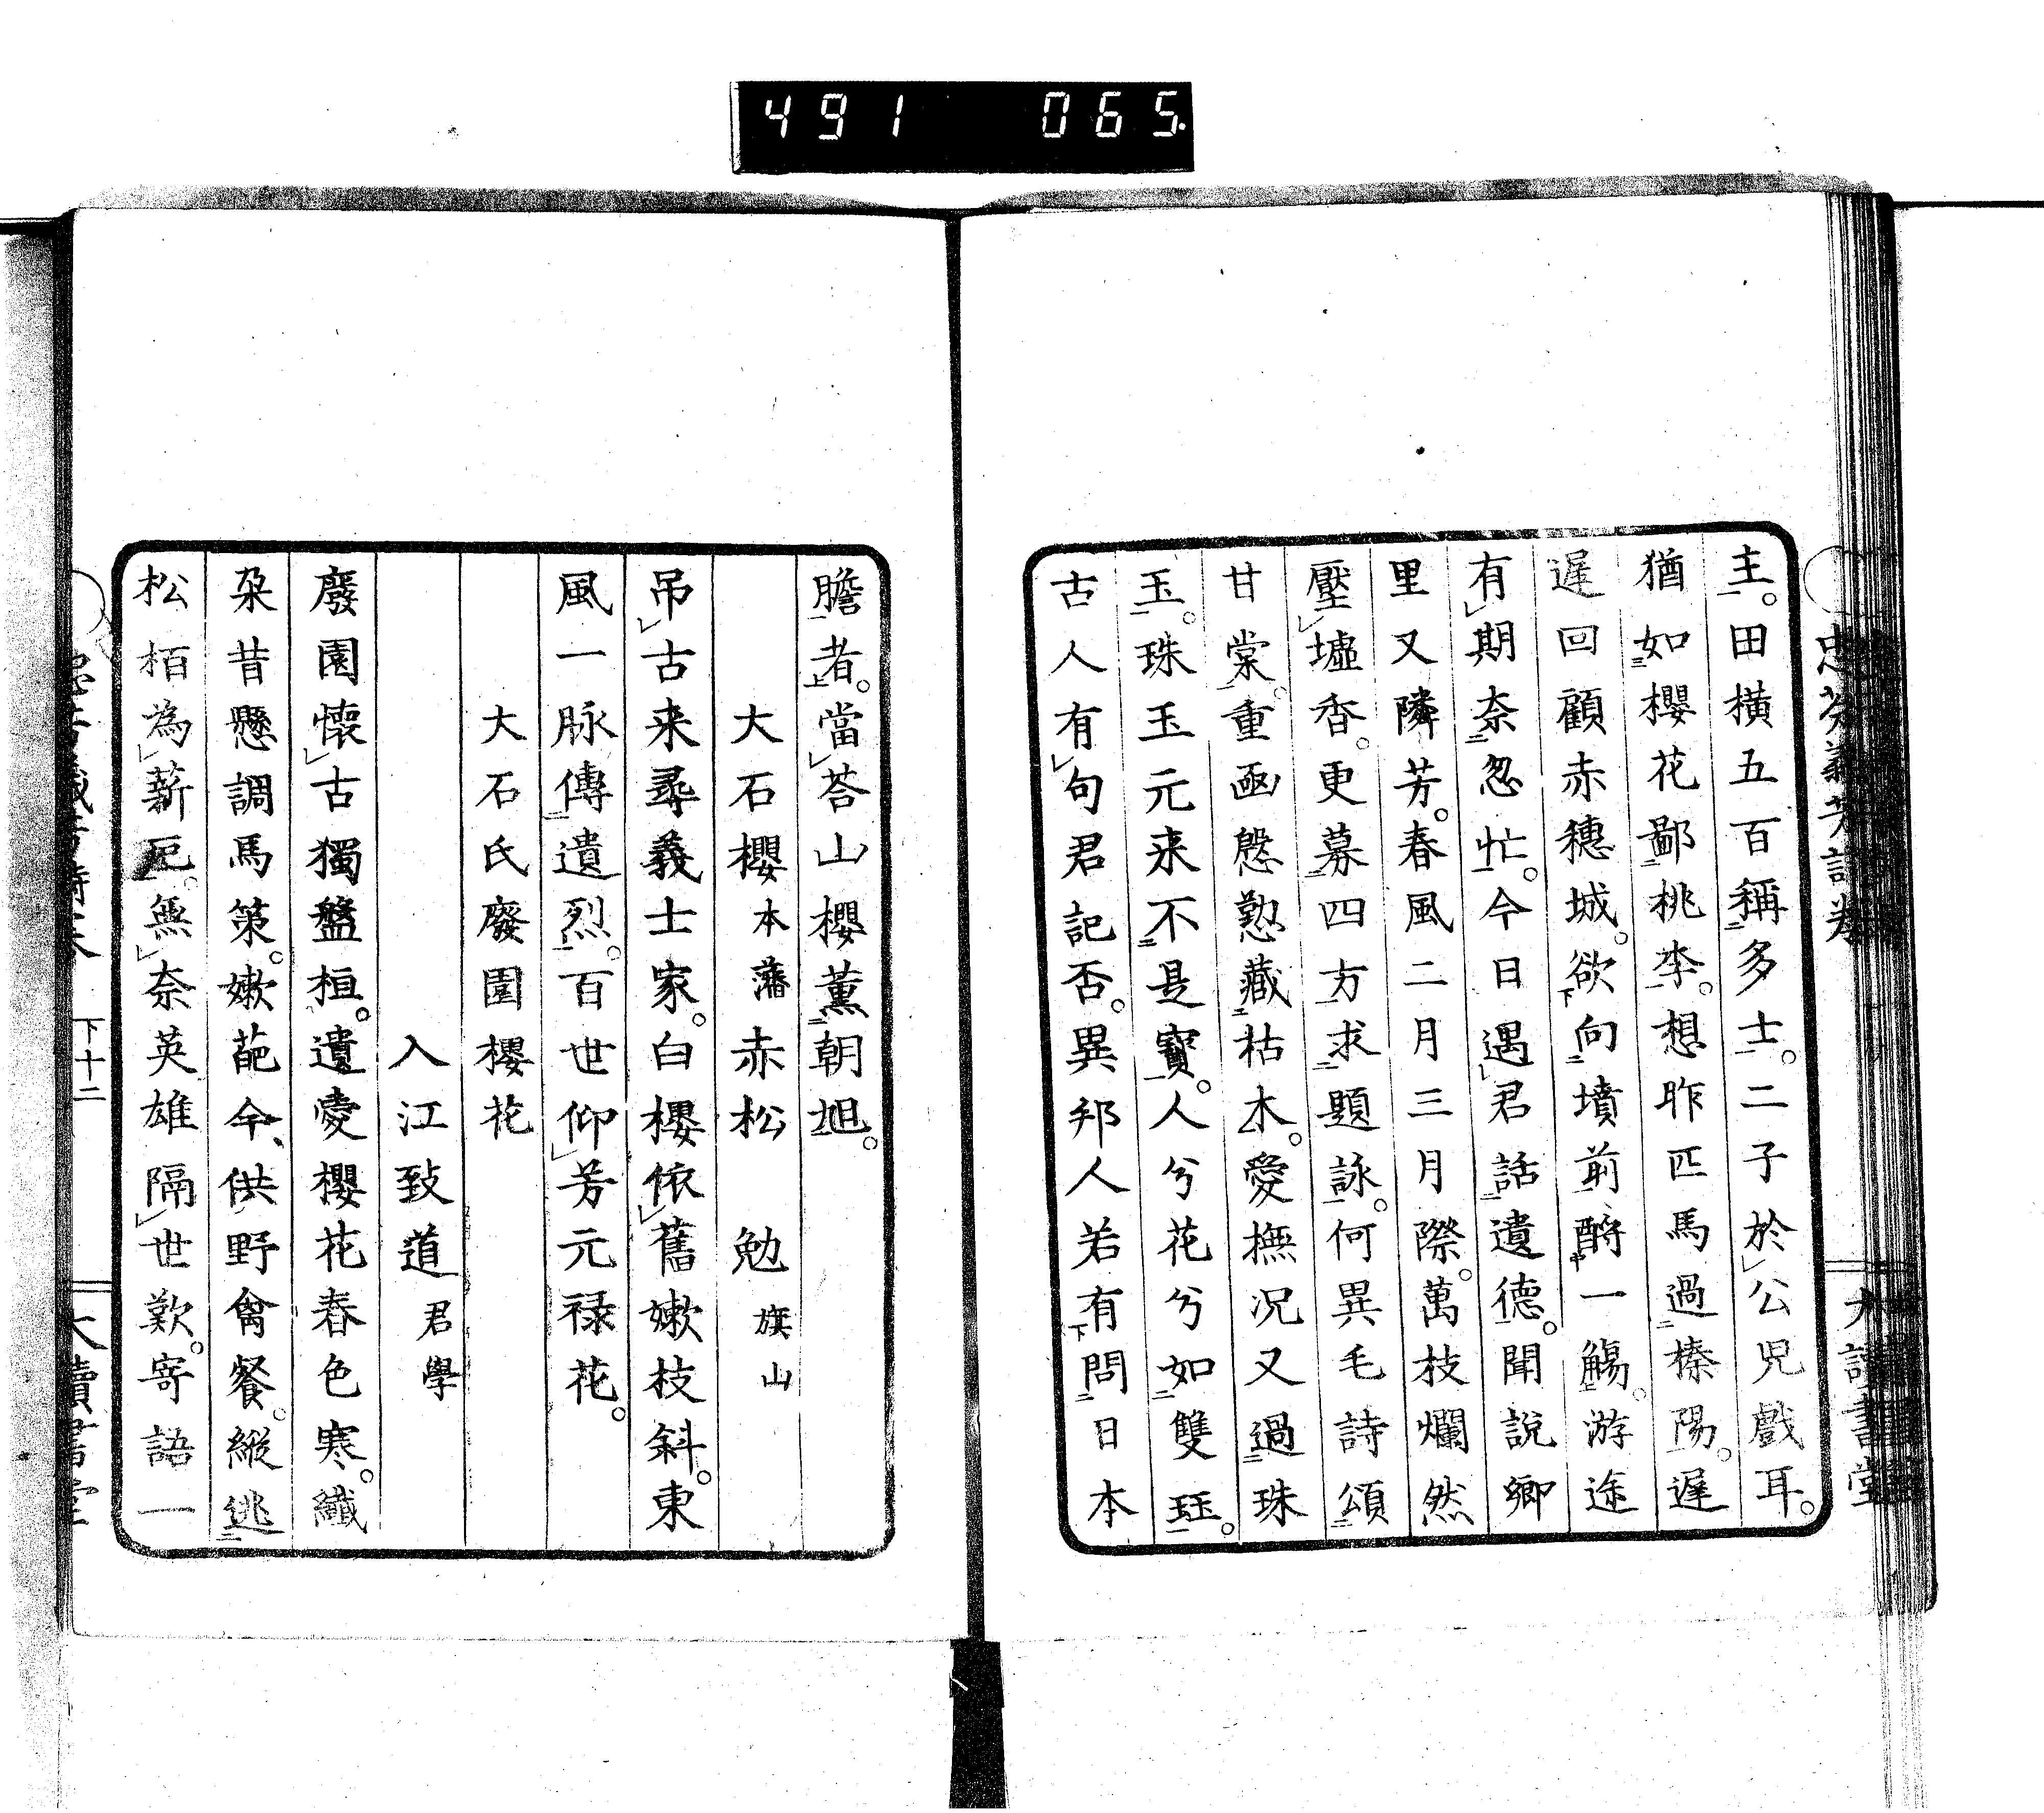 491 065.
主。田橫五百稱多士。二子於公兒戲耳。
猶如櫻花鄙桃李。想昨匹馬過榛陽。遲
遲回顧赤穗城。欲向墳前酹一觴。游途
有期奈怱忙。今日遇君話遺德。聞說鄉
里又隣芳。春風二月三月際。萬枝爛然
壓墟香。更募四方求題詠。何異毛詩頌
甘棠。重凾慇懃藏枯木。愛撫況又過珠
玉。珠玉元来不是寶。人兮花兮如雙珏。
古人有句君記否。異邦人若有問日本
膽者。當荅山櫻薰朝旭。
大石櫻 本藩 赤松 勉 旗山
吊古来尋義士家。白櫻依舊嫩枝斜。東
風一脉傳遺烈。百世仰芳元禄花。
大石氏廢園櫻花
入江致道 君學
廢園懷古獨盤桓。遺愛櫻花春色寒。纖
朶昔懸調馬策。嫩葩今供野禽餐。縱逃
松栢為薪厄。無奈英雄隔世歎。寄語一
下十二